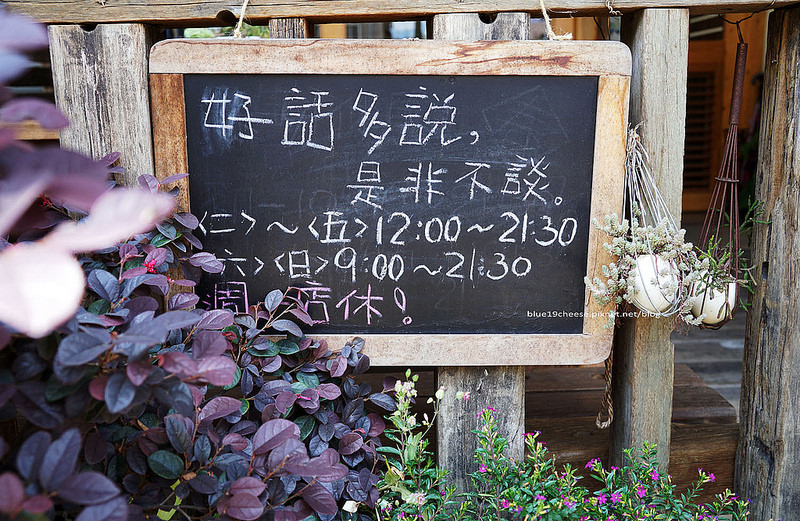 好話多説,
是非不談。
<二>~<五>12:00~21:30
六><日>9:00~21:30
週 店休!
blue19cheese.pixnet.net/blog